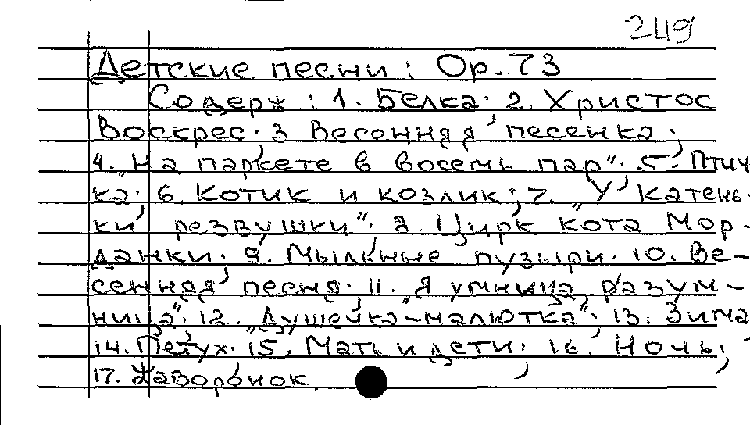 249
Детские песни: Op. 73
Содерж: 1. Белка; 2. Христос
Воскрес; 3 Весенняя песенка;
4. „На паркете в восемь пар"; 5. Птич-
ка; 6. Котик и козлик; 7. „У Катень-
ки резвушки"; 8. Цирк кота Мор-
данки; 9. Мыльные пузыри; 10. Ве-
сенняя песня; 11. „Я умница, разум-
ница"; 12. „Душечка-малютка"; 13. Зима
14. Петух; 15. Мать и дети; 16. Ночь;
17. Жаворонок.